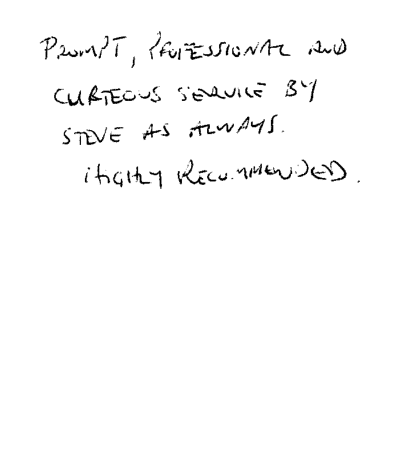 PROMPT, PROFESSIONAL AND
CURTEOUS SERVICE BY
STEVE AS ALWAYS.
HIGHLY RECOMMENDED.